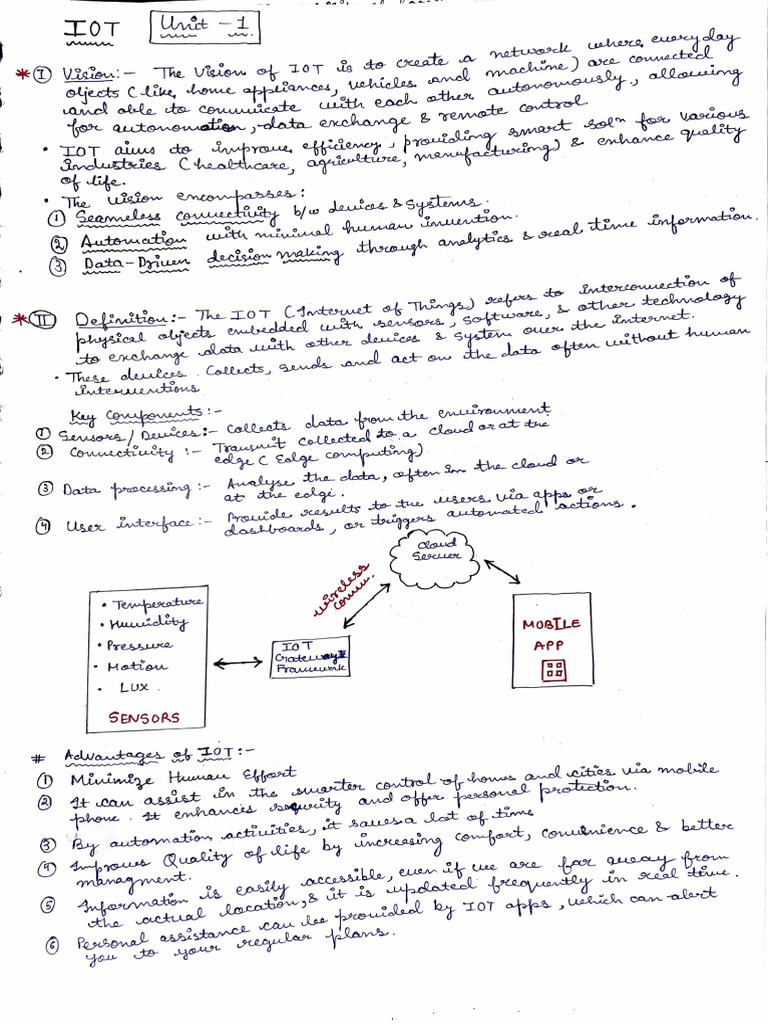 IOT Unit - 1
* I Vision:- The Vision of IOT is to create a network where everyday
objects (like, home appliances, vehicles and machine) are connected
and able to commuicate with each other autonomously, allowing
for autonomation, data exchange & remote control.
• IOT aims to improve efficiency, providing smart soln for various
industries (healthcare, agriculture, manufacturing) & enhance quality
of life.
• The vision encompasses:
① Seamless connectivity b/w devices & systems.
② Automation with minimal human invention.
③ Data-Driven decision making through analytics & real time information.
* II Definition:- The IOT (Internet of Things) refers to interconnection of
physical objects embedded with sensors, software, & other technology
to exchange data with other devices & system over the internet.
• These devices collects, sends and act on the data often without human
interventions
Key Components:-
① Sensors/Devices:- Collects data from the environment
② Connectivity:- Transmit collected to a cloud or at the
edge (Edge computing)
③ Data processing:- Analyse the data, often in the cloud or
at the edge.
④ User interface:- Provide results to the users via apps or
dashboards, or triggers automated actions.
Cloud
Server
wireless
comm.
• Temperature
• Humidity
• Pressure
• Motion
• LUX.
SENSORS
IOT
Gateway
Framework
MOBILE
APP
# Advantages of IOT:-
① Minimize Human Effort
② It can assist in the smarter control of homes and cities via mobile
phone. It enhances security and offer personal protection.
③ By automation activities, it saves a lot of time
④ Improves Quality of life by increasing comfort, convenience & better
managment.
⑤ Information is easily accessible, even if we are far away from
the actual location, & it is updated frequently in real time.
⑥ Personal assistance can be provided by IOT apps, which can alert
you to your regular plans.